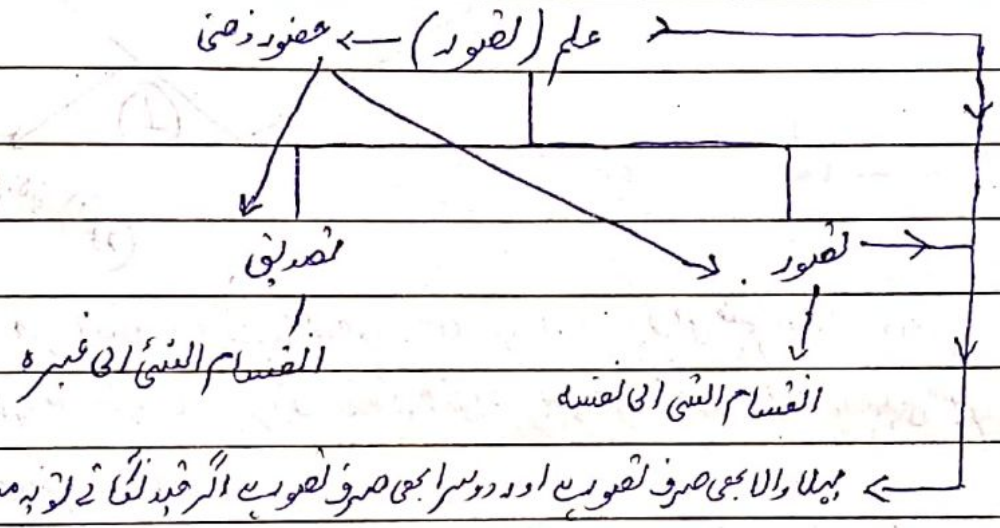 علم (تصور) ← حضور ذہنی
تصور تصدیق
انقسام الشئ الی نفسہ انقسام الشئ الی غیرہ
پہلا والا بھی صرف تصور ہے اور دوسرا بھی صرف تصور ہے اگر قید لگاتے تو یہ